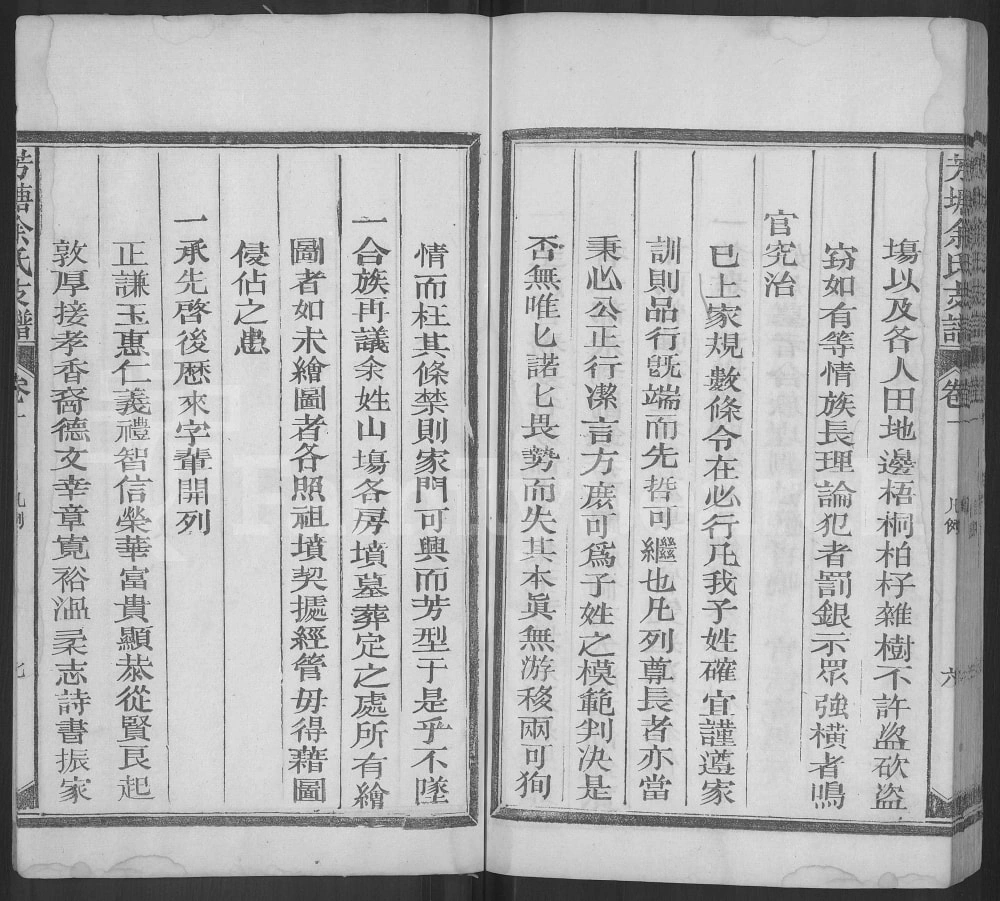 芳塘余氏支譜 卷一 凡例 六
塲以及各人田地邊梧桐柏籽雜樹不許盜砍盜
窃如有等情族長理論犯者罰銀示眾強橫者鳴
官究治
已上家規數條令在必行凡我子姓確宜謹遵家
訓則品行旣端而先哲可繼也凡列尊長者亦當
秉必公正行潔言方庶可爲子姓之模範判决是
否無唯匕諾匕畏勢而失其本眞無游移兩可狥
情而枉其條禁則家門可興而芳型于是乎不墜
一合族再議余姓山塲各房墳墓葬定之處所有繪
圖者如未繪圖者各照祖墳契摭經管毋得藉圖
侵佔之患
一承先啓後歷來字輩開列
正謙玉惠仁義禮智信榮華富貴顯恭從賢良起
敦厚接孝香裔德文幸章寬裕溫柔志詩書振家
芳塘余氏支譜 卷一 凡例 七